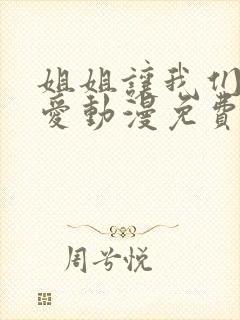 姐姐讓我们
愛動漫免費
周兮悦